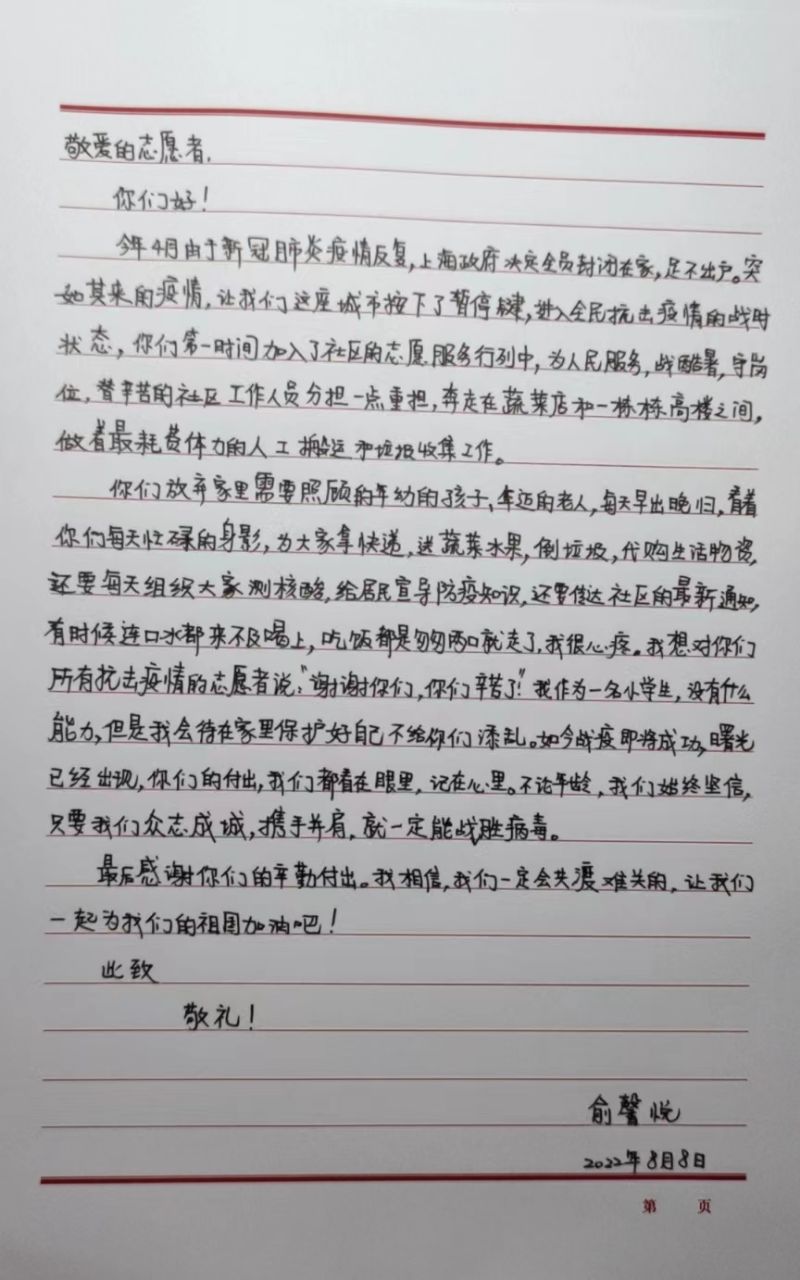 敬爱的志愿者,
你们好!
今年4月由于新冠肺炎疫情反复,上海政府决定全员封闭在家,足不出户。突
如其来的疫情,让我们这座城市按下了暂停键,进入全民抗击疫情的战时
状态,你们第一时间加入了社区的志愿服务行列中,为人民服务,战酷暑,守岗
位,替辛苦的社区工作人员分担一点重担,奔走在蔬菜店和一栋栋高楼之间,
做着最耗费体力的人工搬运和垃圾收集工作。
你们放弃家里需要照顾的年幼的孩子、年迈的老人,每天早出晚归,看着
你们每天忙碌的身影,为大家拿快递,送蔬菜水果,倒垃圾,代购生活物资,
还要每天组织大家测核酸,给居民宣导防疫知识,还要传达社区的最新通知,
有时候连口水都来不及喝上,吃饭都是匆匆两口就走了,我很心疼。我想对你们
所有抗击疫情的志愿者说:"谢谢你们,你们辛苦了!"我作为一名小学生,没有什么
能力,但是我会待在家里保护好自己不给你们添乱。如今战疫即将成功,曙光
已经出现,你们的付出,我们都看在眼里,记在心里。不论年龄,我们始终坚信,
只要我们众志成城,携手并肩,就一定能战胜病毒。
最后感谢你们的辛勤付出。我相信,我们一定会共渡难关的,让我们
一起为我们的祖国加油吧!
此致
敬礼!
俞馨悦
2022年8月8日
第 页